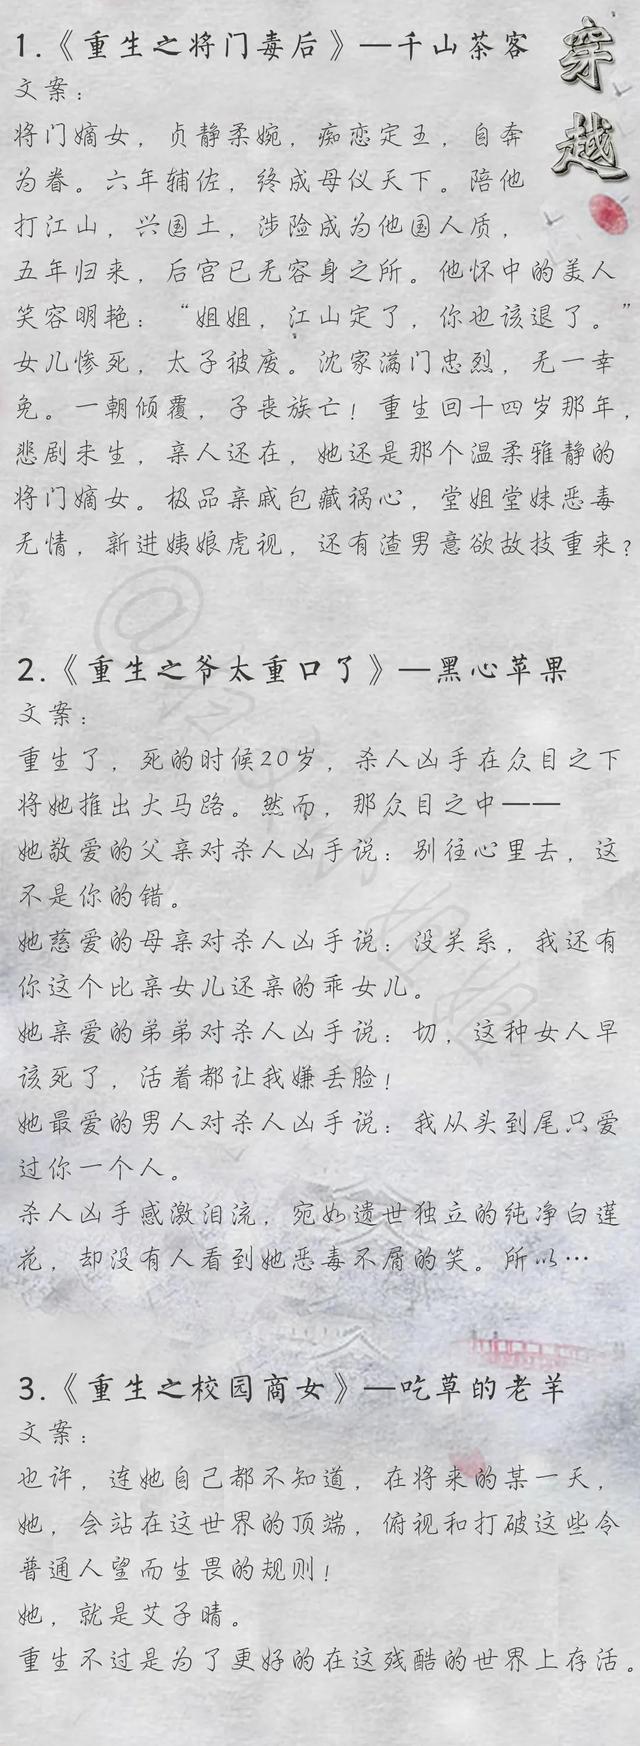 穿越
1.《重生之将门毒后》—千山茶客
文案：
将门嫡女，贞静柔婉，痴恋定王，自奔
为眷。六年辅佐，终成母仪天下。陪他
打江山，兴国土，涉险成为他国人质，
五年归来，后宫已无容身之所。他怀中的美人
笑容明艳：“姐姐，江山定了，你也该退了。”
女儿惨死，太子被废。沈家满门忠烈，无一幸
免。一朝倾覆，子丧族亡！重生回十四岁那年，
悲剧未生，亲人还在，她还是那个温柔雅静的
将门嫡女。极品亲戚包藏祸心，堂姐堂妹恶毒
无情，新进姨娘虎视，还有渣男意欲故技重来？
2.《重生之爷太重口了》—黑心苹果
文案：
重生了，死的时候20岁，杀人凶手在众目之下
将她推出大马路。然而，那众目之中——
她敬爱的父亲对杀人凶手说：别往心里去，这
不是你的错。
她慈爱的母亲对杀人凶手说：没关系，我还有
你这个比亲女儿还亲的乖女儿。
她亲爱的弟弟对杀人凶手说：切，这种女人早
该死了，活着都让我嫌丢脸！
她最爱的男人对杀人凶手说：我从头到尾只爱
过你一个人。
杀人凶手感激泪流，宛如遗世独立的纯净白莲
花，却没有人看到她恶毒不屑的笑。所以…
3.《重生之校园商女》—吃草的老羊
文案：
也许，连她自己都不知道，在将来的某一天，
她，会站在这世界的顶端，俯视和打破这些令
普通人望而生畏的规则！
她，就是艾子晴。
重生不过是为了更好的在这残酷的世界上存活。